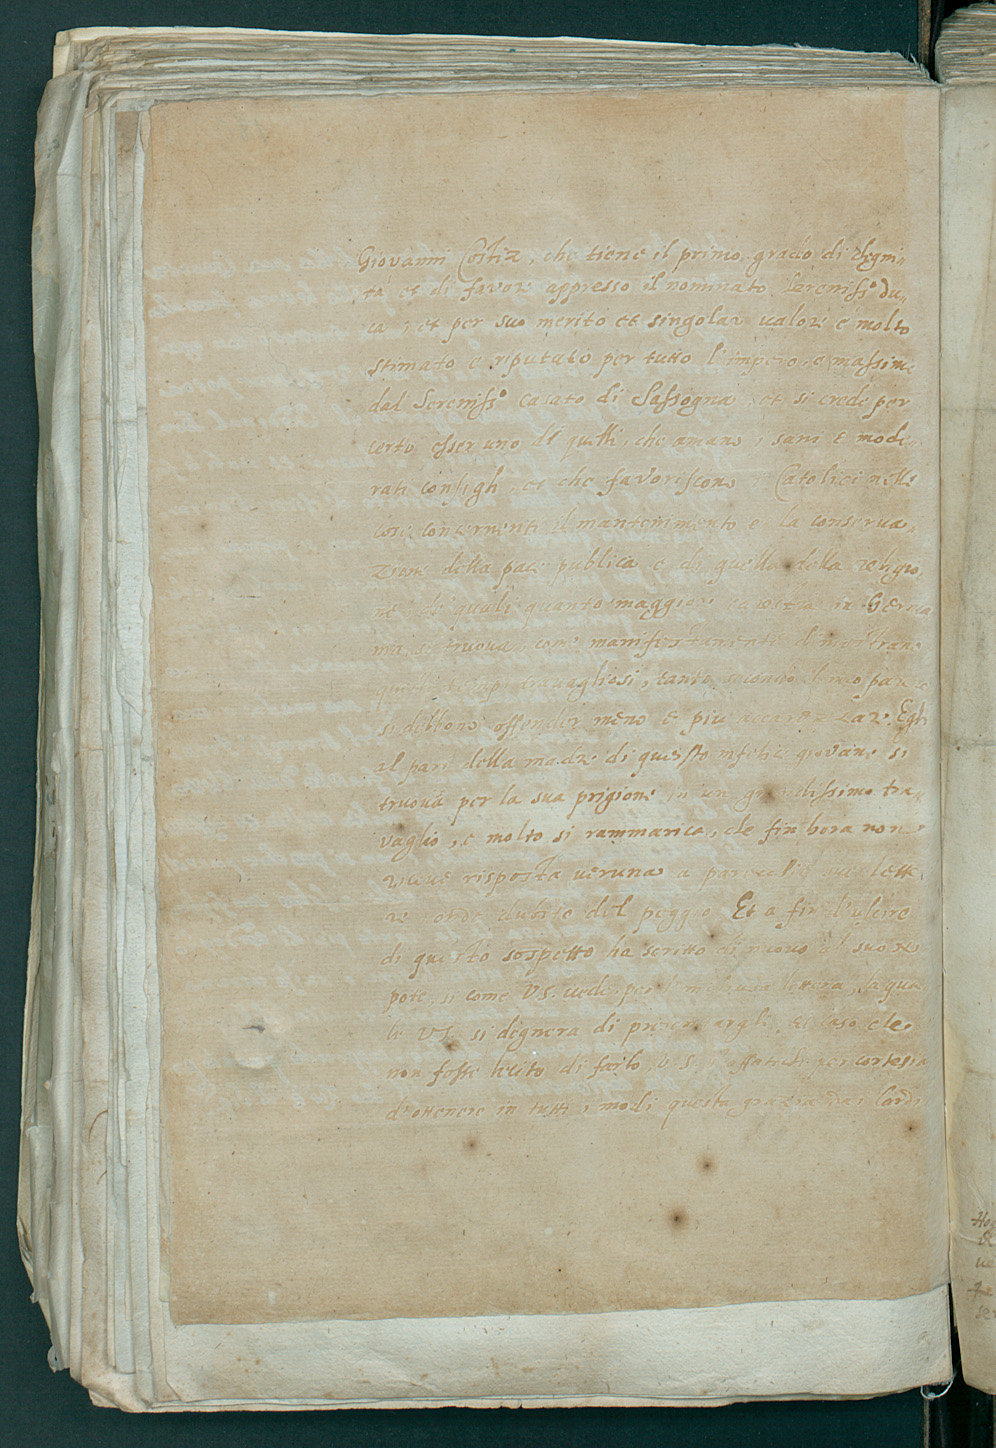 Giovanni Costiz, che tiene il primo grado di degni-
tà et di favor appresso il nominato Serenissº du-
ca, et per suo merito et singolar valor è molto
stimato e riputato per tutto l'impero, e massime
dal Serenissº casato di Sassogna, et si crede per
certo esser uno di quelli, che amano i sani e mode-
rati consigli, et che favoriscono i Catolici nelle
cose concernenti il mantenimento e la conserva-
zione della pace publica e di quella della religio-
ne di quali quanto maggior carestia in Germa
nia si truova, come manifestamente dimostrano
questi tempi travagliosi, tanto secondo il mio parere
si debbono offender meno e più accarezzar. Egli
al pari della madre di questo infelice giovane si
truova per la sua prigione in un grandissimo tra-
vaglio, e molto si rammarica, che fin hora non
riceve risposta veruna a parecchie sue lette-
re onde dubito del peggio. Et a fin d'uscire
di questo sospetto ha scritto di nuovo al suo ne-
pote, si come V.S. vede per l'inclusa lettera, la qua
le VS. si degnera di presentargli. Et caso che
non fosse lecito di farlo, V.S. s'affatichi per cortesia
d'ottenere in tutti i modi questa grazia dai Cardi